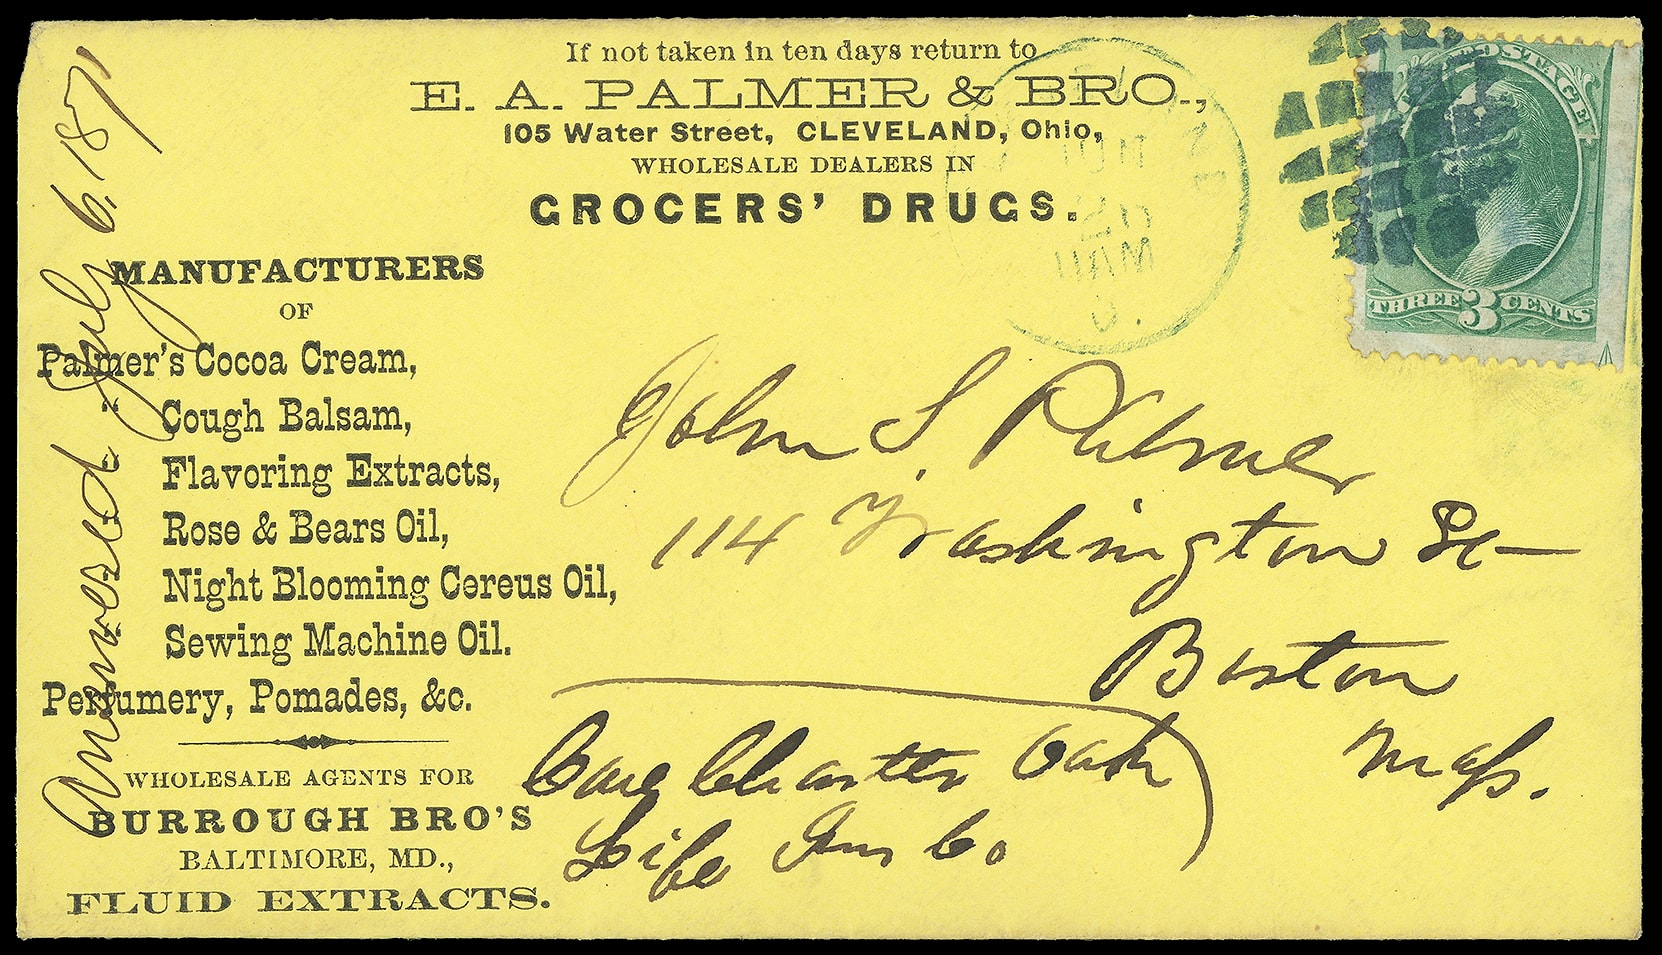 If not taken in ten days return to
E. A. PALMER & BRO.,
105 Water Street, CLEVELAND, Ohio,
WHOLESALE DEALERS IN
GROCERS' DRUGS.
MANUFACTURERS
OF
Palmer's Cocoa Cream,
" Cough Balsam,
" Flavoring Extracts,
" Rose & Bears Oil,
" Night Blooming Cereus Oil,
" Sewing Machine Oil.
Perfumery, Pomades, &c.
WHOLESALE AGENTS FOR
BURROUGH BRO'S
BALTIMORE, MD.,
FLUID EXTRACTS.
Answered July 6. 1871
POSTAGE
THREE 3 CENTS
John S. Palmer
114 Washington St
Boston
Mass.
Care Charter Oak
Life Ins Co